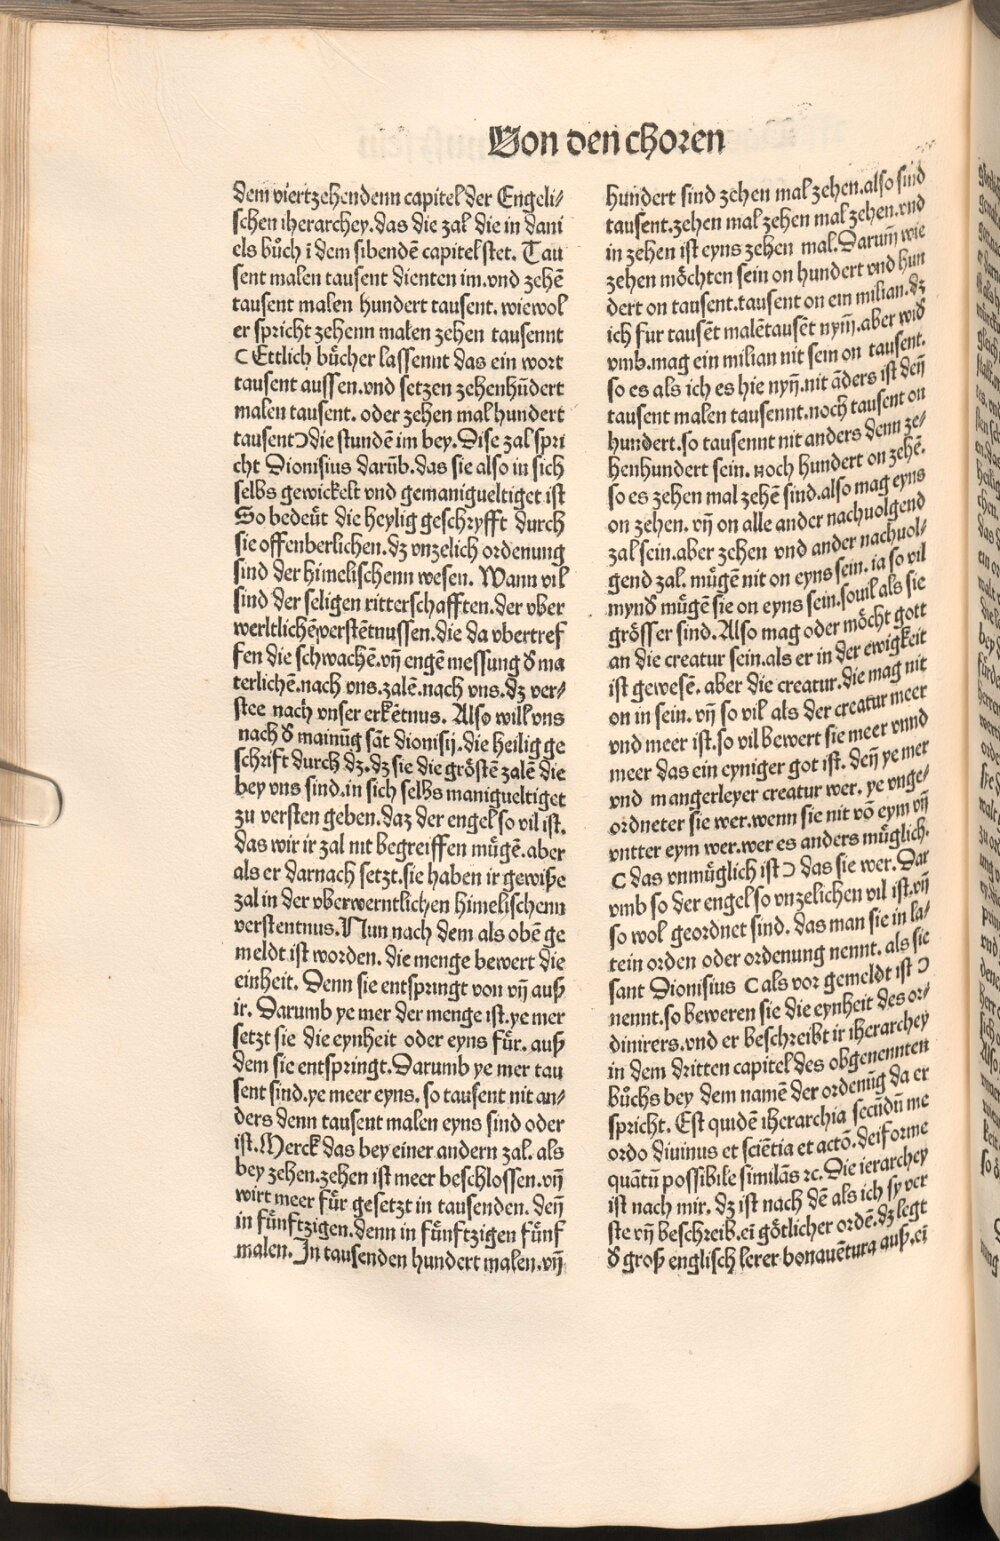 Von den choren
dem viertzehendenn capitel der Engeli-
schen iherarchey. das die zal die in dani
els bůch ī dem sibendē capitel stet. Tau
sent malen tausent dienten im. vnd zehē
tausent malen hundert tausent. wiewol
er spricht zehenn malen zehen tausennt
C Ettlich bůcher lassennt das ein wort
tausent aussen. vnd setzen zehenhūdert
malen tausent. oder zehen mal hundert
tausentↄ die stundē im bey. Dise zal spri
cht Dionisius darūb. das sie also in sich
selbs gewickelt vnd gemanigueltiget ist
So bedeüt die heylig geschryfft durch
sie offenberlichen. dz vnzelich ordenung
sind der himelischenn wesen. Wann vil
sind der seligen ritterschafften. der vber
werltlichē verstētnussen. die da vbertref
fen die schwachē. vn̄ engē messung ď ma
terlichē. nach vns. zalē. nach vns. dz ver-
stee nach vnser erkētnus. Also will vns
nach ď mainūg sāt dionisij. die heilig ge
schrift durch dz. dz sie die gröstē zalē die
bey vns sind. in sich selbs manigueltiget
zu versten geben. daz der engel so vil ist.
das wir ir zal nit begreiffen mügē. aber
als er darnach setzt. sie haben ir gewiße
zal in der vberwerntlichen himelischenn
verstentnus. Nun nach dem als obē ge
meldt ist worden. die menge bewert die
einheit. Denn sie entspringt von vn̄ auß
ir. Darumb ye mer der menge ist. ye mer
setzt sie die eynheit oder eyns für. auß
dem sie entspringt. Darumb ye mer tau
sent sind. ye meer eyns. so tausent nit an-
ders denn tausent malen eyns sind oder
ist. Merck das bey einer andern zal. als
bey zehen. zehen ist meer beschlossen. vn̄
wirt meer für gesetzt in tausenden. den̄
in fünftzigen. denn in fünftzigen fünf
malen. In tausenden hundert malen. vn̄
hundert sind zehen mal zehen. also sind
tausent. zehen mal zehen mal zehen. vnd
in zehen ist eyns zehen mal. Darum̄ wie
zehen möchten sein on hundert vnd hun
dert on tausent. tausent on ein milian. dz
ich fur tausēt malētausēt nym̄. aber wiď
vmb. mag ein milian nit sein on tausent.
so es als ich es hie nyn̄. nit āders ist den̄
tausent malen tausennt. noch tausent on
hundert. so tausennt nit anders denn ze-
henhundert sein. noch hundert on zehē.
so es zehen mal zehē sind. also mag eyns
on zehen. vn̄ on alle ander nachuolgend
zal sein. aber zehen vnd ander nachuol-
gend zal. mügē nit on eyns sein. ia so vil
mynď mügē sie on eyns sein. souil als sie
grösser sind. Also mag oder möcht gott
an die creatur sein. als er in der ewigkeit
ist gewesē. aber die creatur. die mag nit
on in sein. vn̄ so vil als der creatur meer
vnd meer ist. so vil bewert sie meer vnnd
meer das ein eyniger got ist. den̄ ye mer
vnd mangerleyer creatur wer. ye vnge-
ordneter sie wer. wenn sie nit vō eym vn̄
vntter eym wer. wer es anders müglich.
C das vnmüglich ist ↄ das sie wer. Dar
vmb so der engel so vnzelichen vil ist. vn̄
so wol geordnet sind. das man sie in la-
tein orden oder ordenung nennt. als sie
sant Dionisius C als vor gemeldt ist ↄ
nennt. so beweren sie die eynheit des or-
dinirers. vnd er beschreibt ir iherarchey
in dem dritten capitel des obgenennten
bůchs bey dem namē der ordenūg da er
spricht. Est quidē iherarchia secūdū me
ordo diuinus et sciētia et actō. deiforme
quātū possibile similās ꝛc. Die ierarchey
ist nach mir. dz ist nach dē als ich sy ver
ste vn̄ beschreib. eī götlicher ordē. dz legt
ď groß englisch lerer bonauētura auß. eī